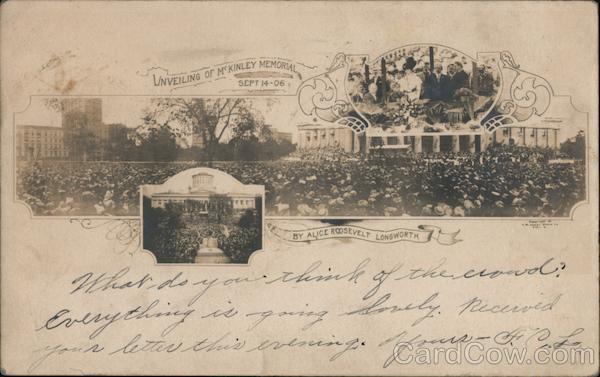 UNVEILING OF McKINLEY MEMORIAL
SEPT 14-06
BY ALICE ROOSEVELT LONGWORTH
What do you think of the crowd?
Everything is going lovely. Received
your letter this evening. Yours - F. C. L.
CardCow.com